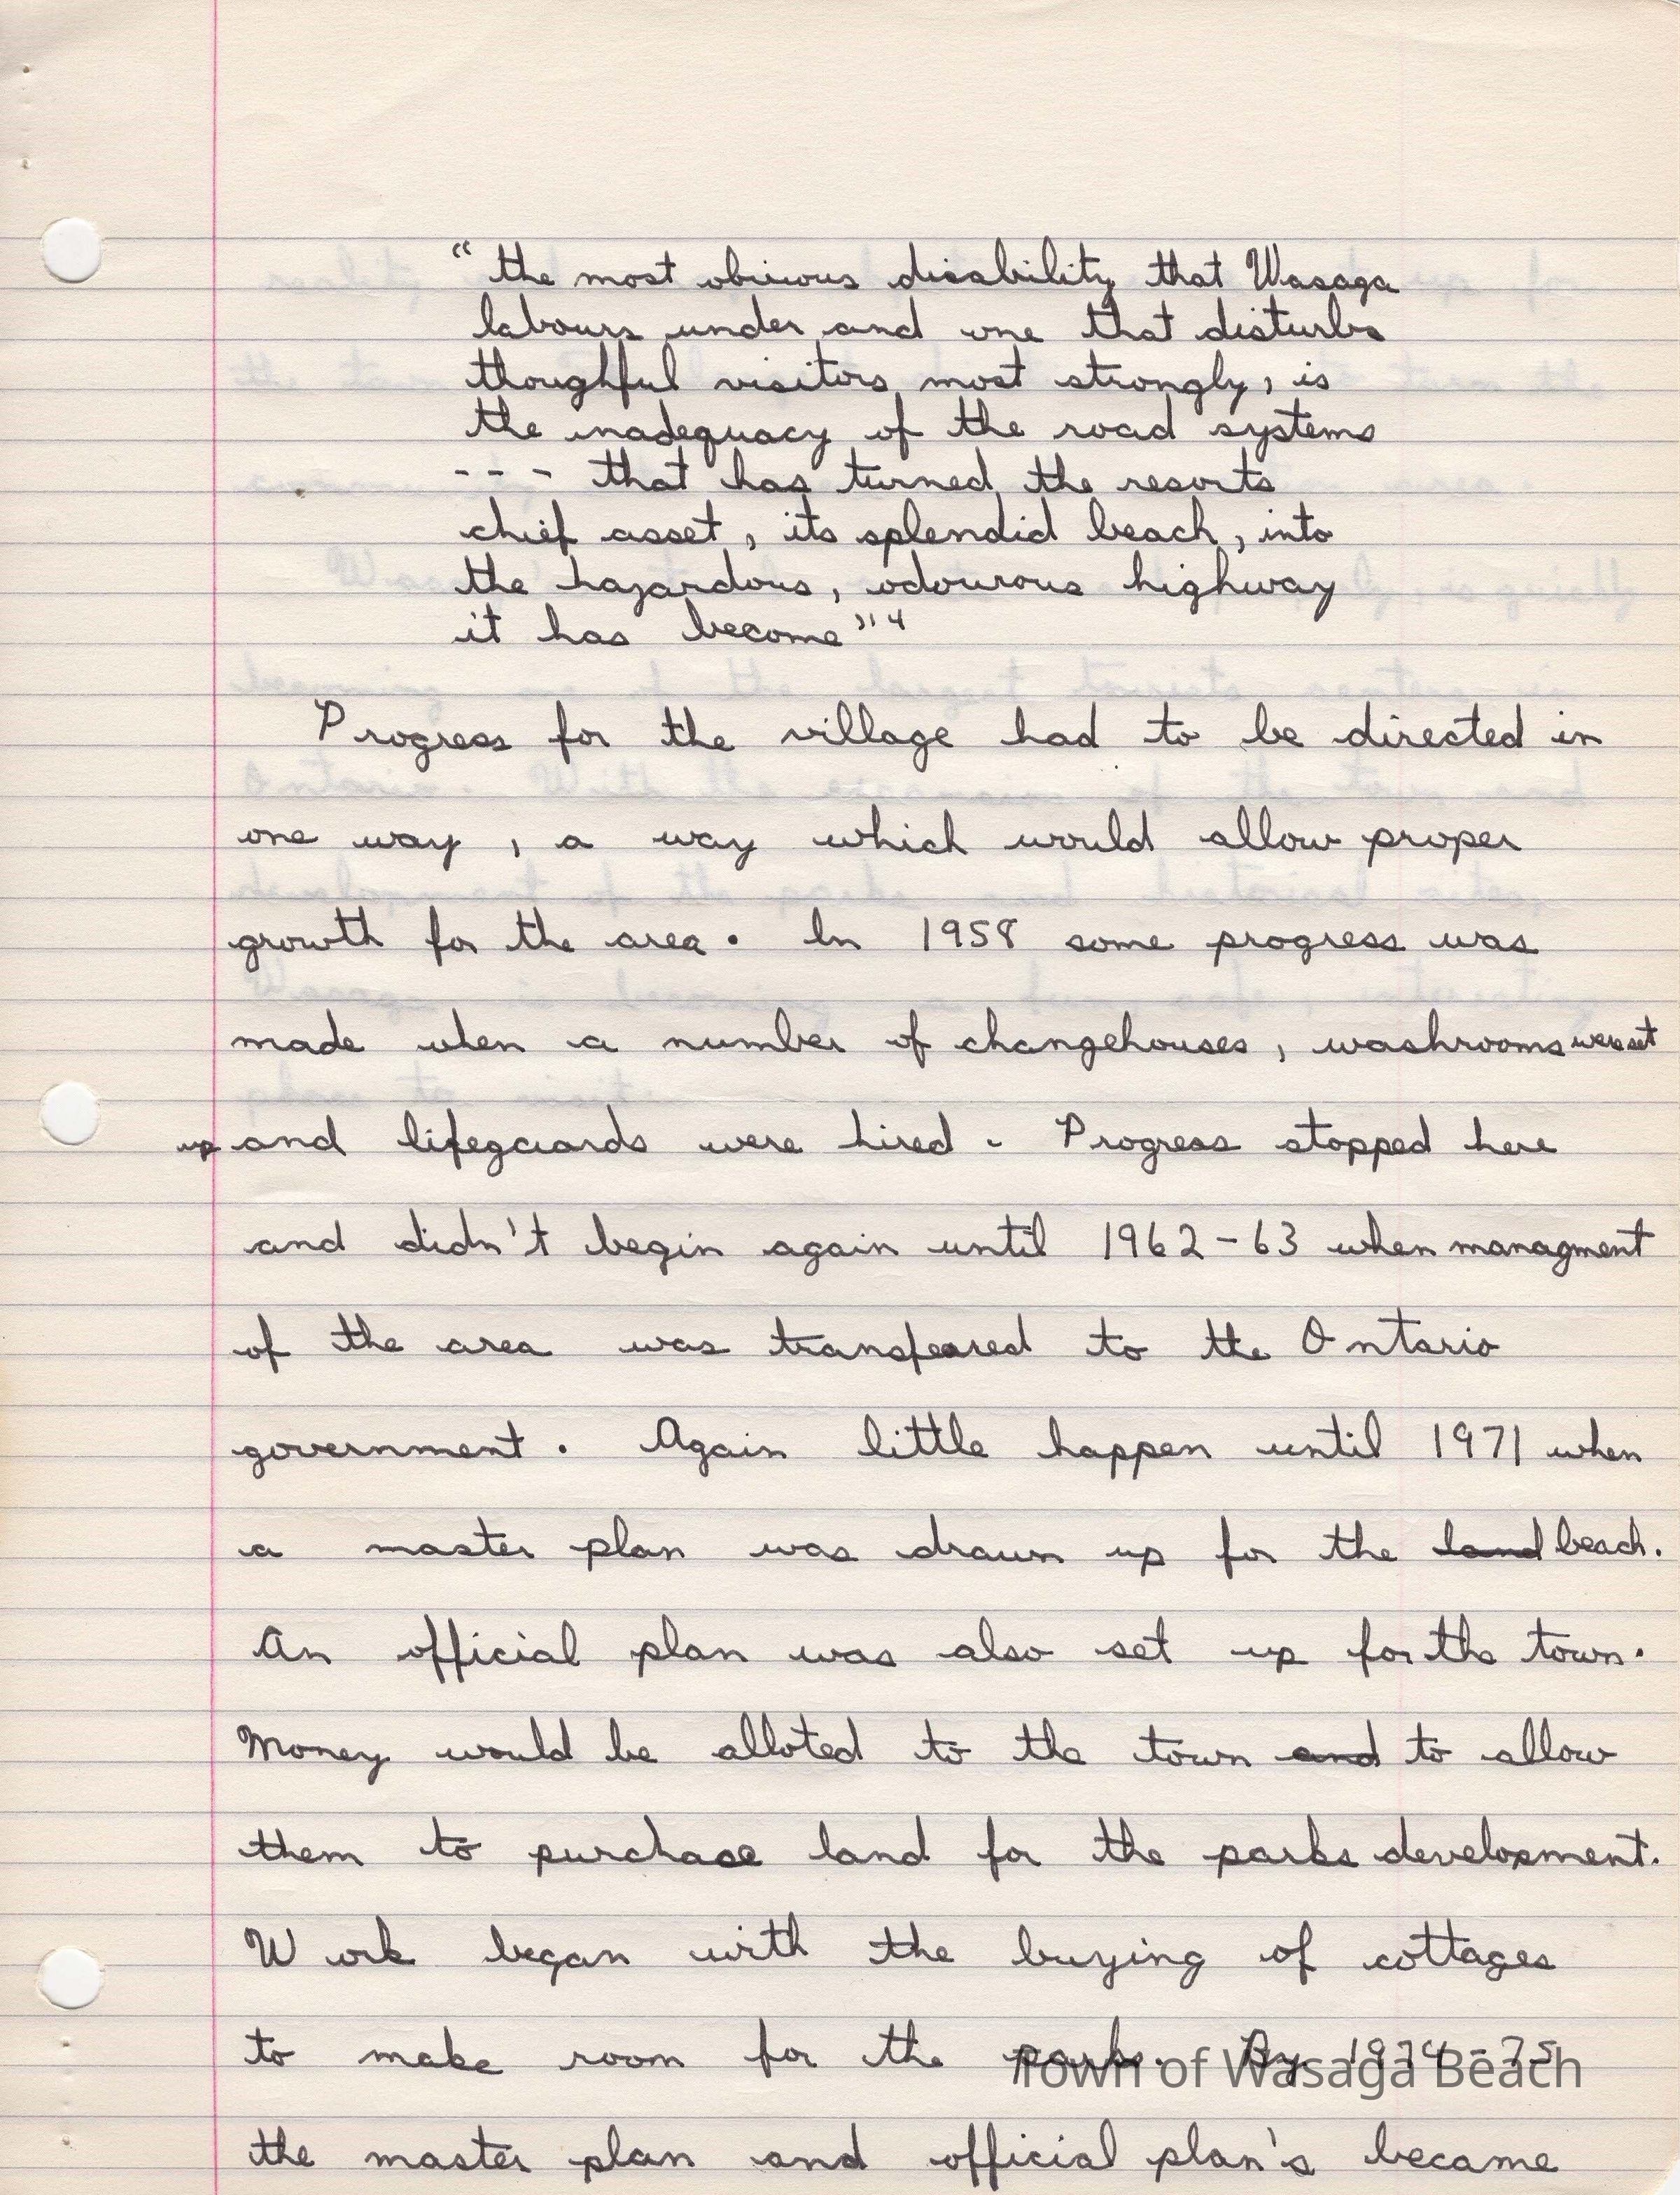 “ the most obvious disability that Wasaga
labours under and one that disturbs
thoughtful visitors most strongly, is
the inadequacy of the road systems
--- that has turned the resorts
chief asset, its splendid beach, into
the hazardous, odourous highway
it has become” 4
Progress for the village had to be directed in
one way, a way which would allow proper
growth for the area. In 1958 some progress was
made when a number of changehouses, washrooms were set
up and lifeguards were hired. Progress stopped here
and didn't begin again until 1962-63 when managment
of the area was transfeared to the Ontario
government. Again little happen until 1971 when
a master plan was drawn up for the land beach.
An official plan was also set up for the town.
Money would be alloted to the town and to allow
them to purchase land for the parks development.
Work began with the buying of cottages
to make room for the park. By 1974-75
Town of Wasaga Beach
the master plan and official plan's became